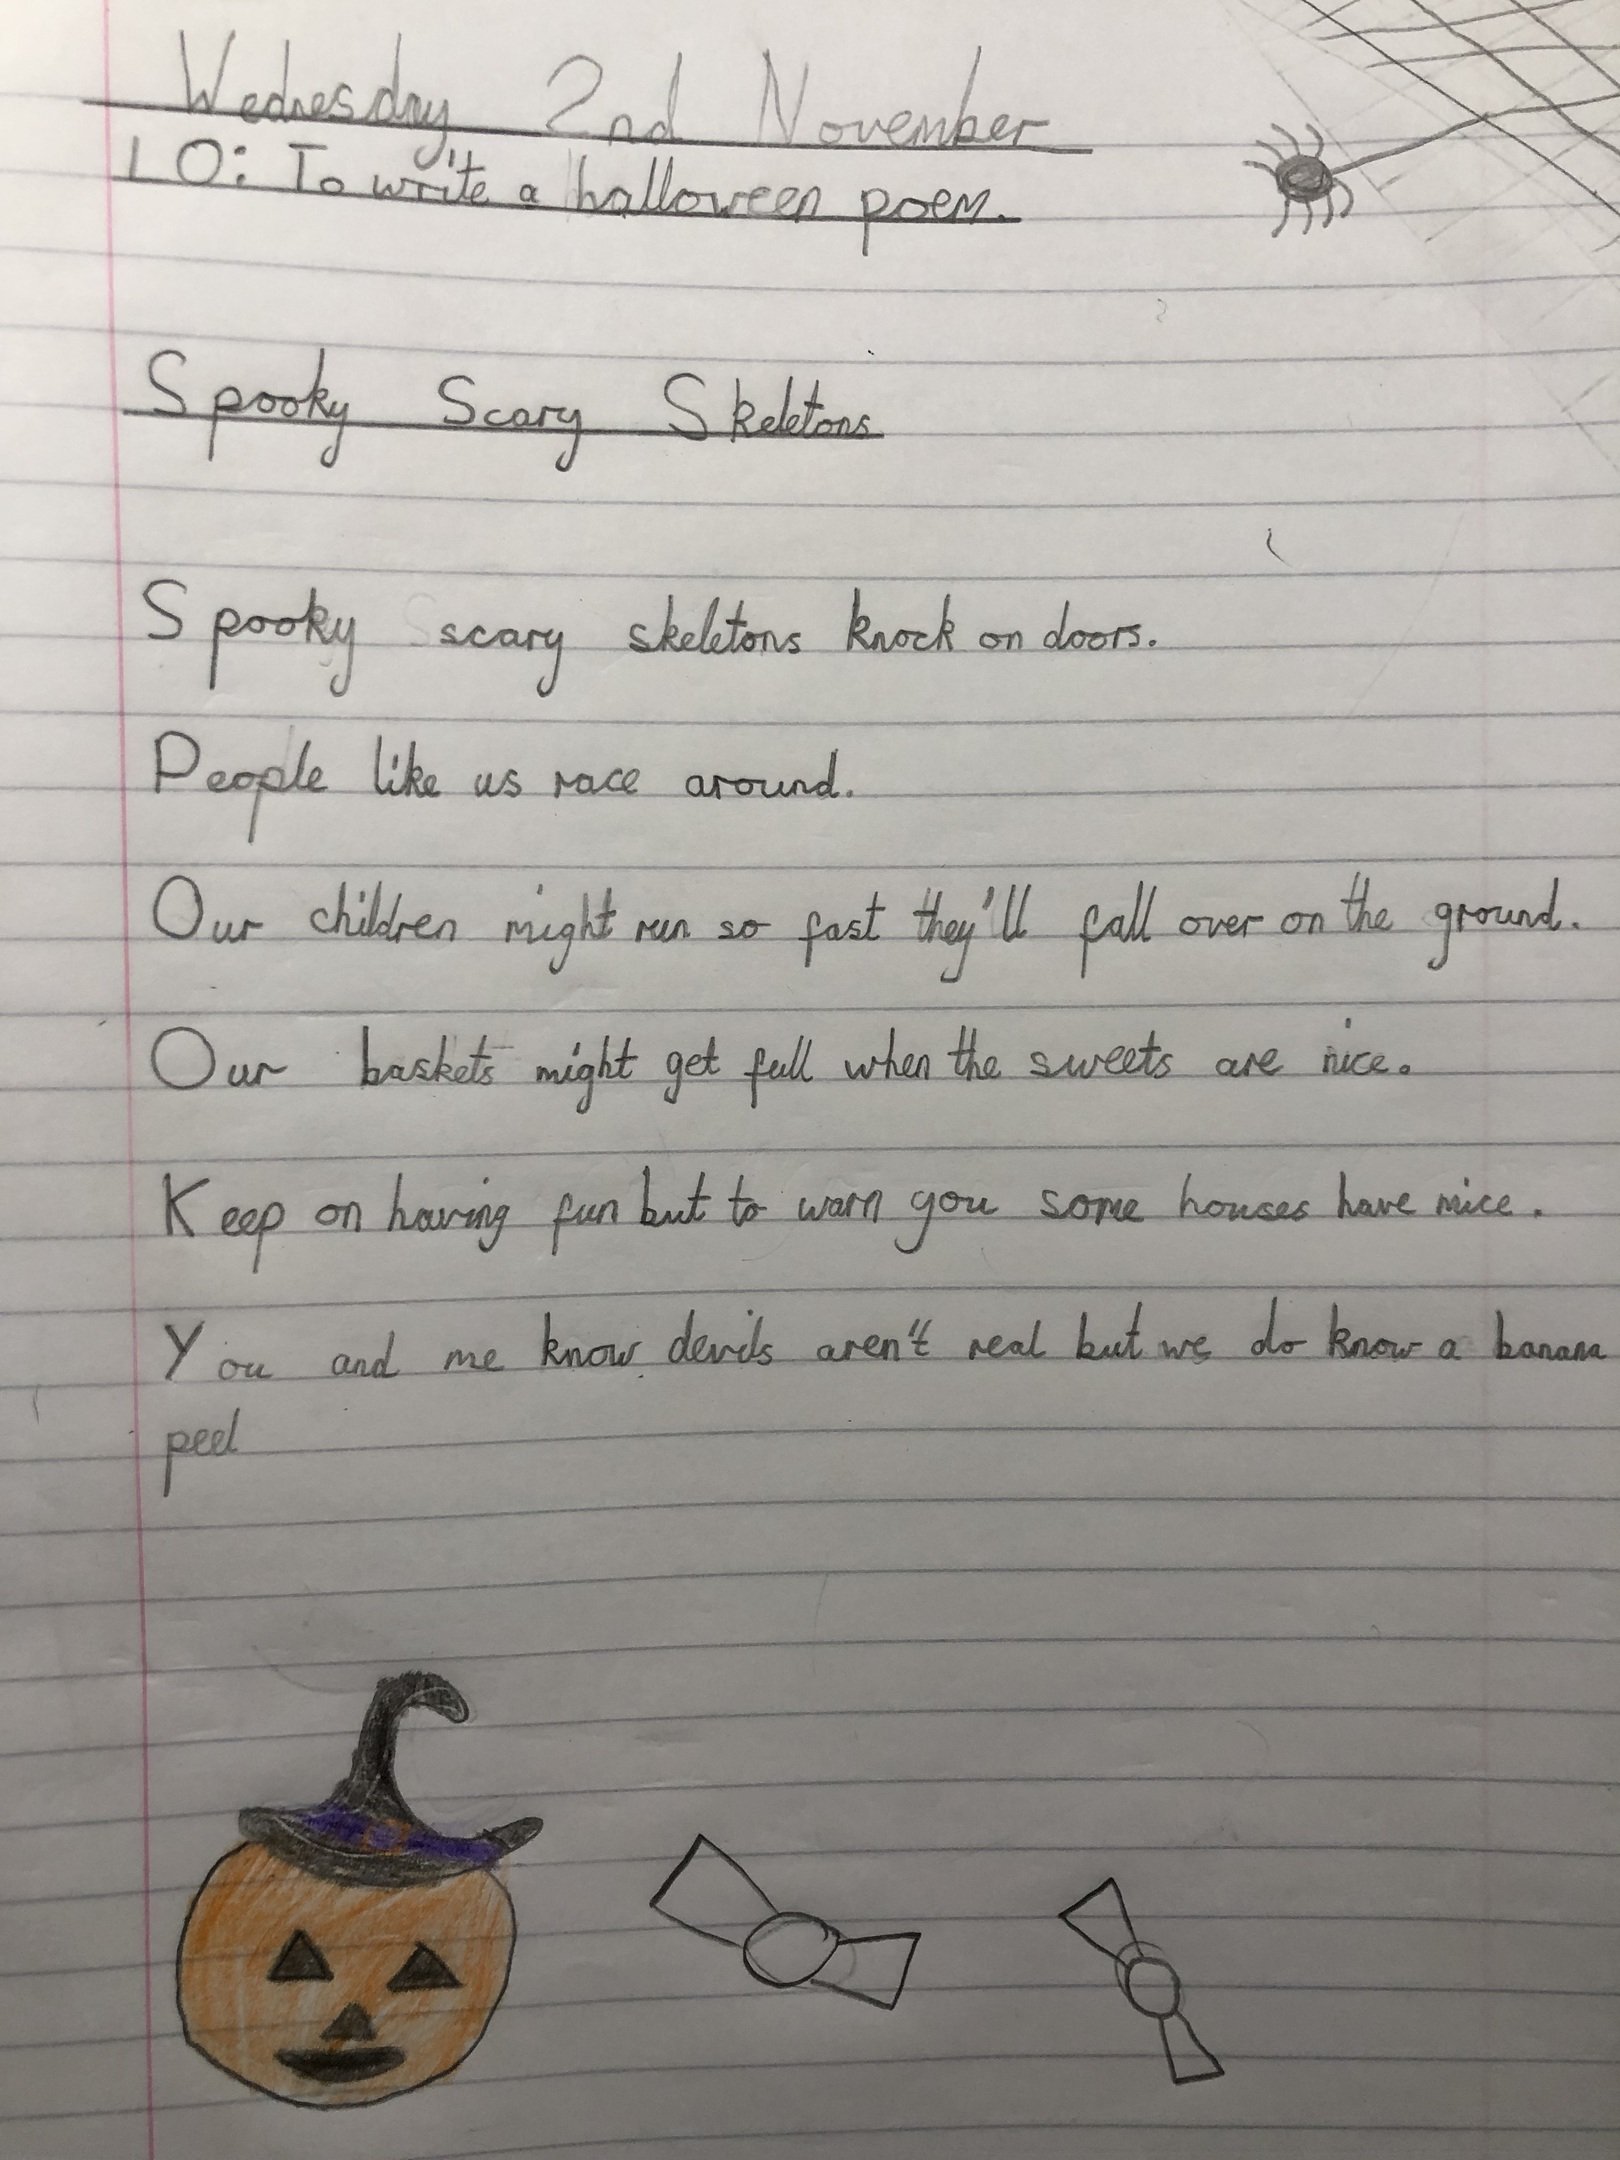 Wednesday 2nd November
LO: To write a halloween poem.
Spooky Scary Skeletons
Spooky scary skeletons knock on doors.
People like us race around.
Our children might run so fast they'll fall over on the ground.
Our baskets might get full when the sweets are nice.
Keep on having fun but to warn you some houses have mice.
You and me know devils aren't real but we do know a banana
peel